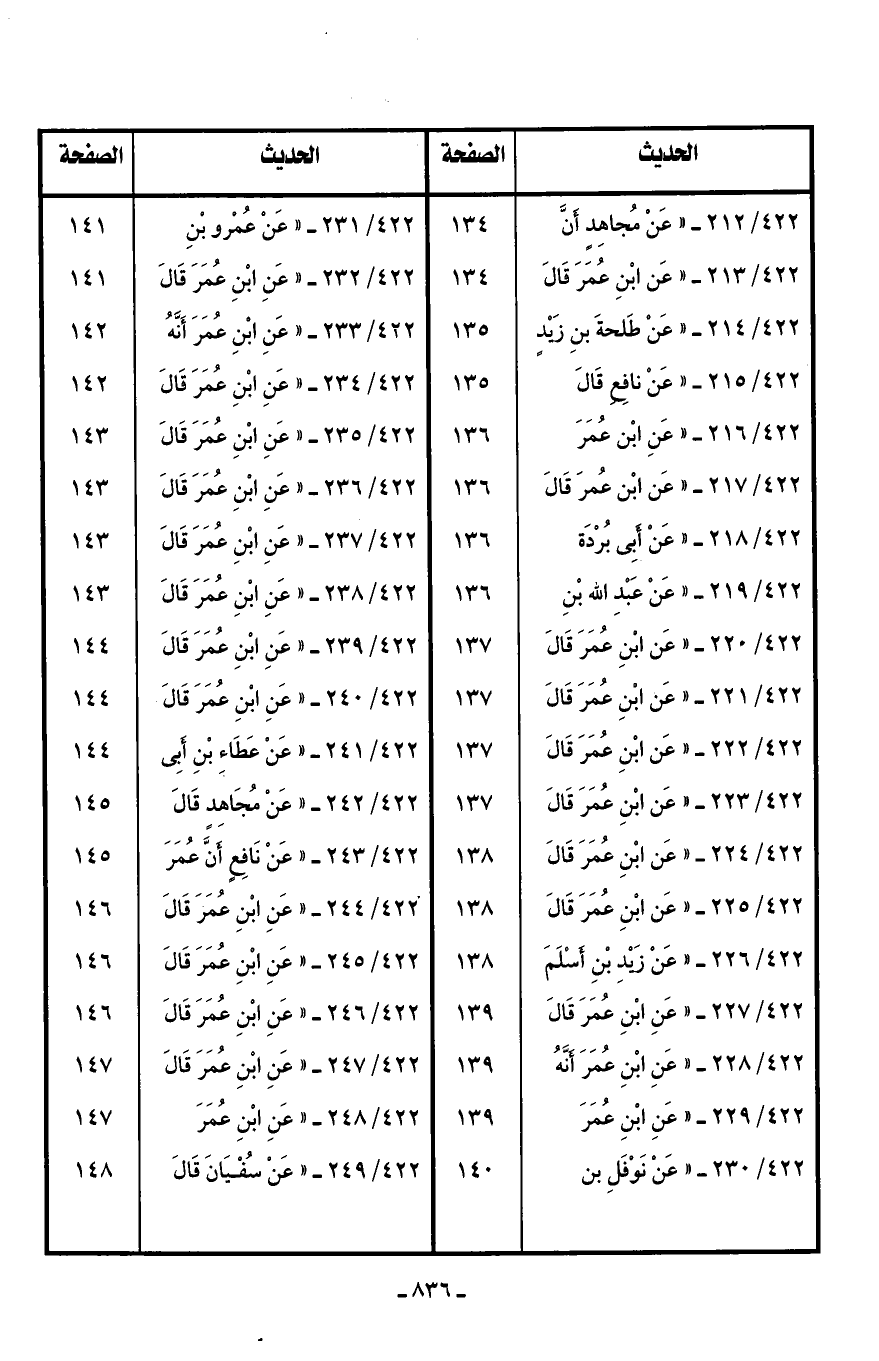 الحديث الصفحة الحديث الصفحة
٤٢٢/ ٢١٢ ـ « عَنْ مُجاهِدٍ أَنَّ ١٣٤ ٤٢٢/ ٢٣١ ـ « عَنْ عُمْرو بْنِ ١٤١
٤٢٢/ ٢١٣ ـ « عَن ابْنِ عُمَرَ قَالَ ١٣٤ ٤٢٢/ ٢٣٢ ـ « عَنِ ابْنِ عُمَرَ قَالَ ١٤١
٤٢٢/ ٢١٤ ـ « عَنْ طَلحةَ بنِ زَيْدٍ ١٣٥ ٤٢٢/ ٢٣٣ ـ « عَنِ ابْنِ عُمَرَ أَنَّهُ ١٤٢
٤٢٢/ ٢١٥ ـ « عَنْ نافِعٍ قَالَ ١٣٥ ٤٢٢/ ٢٣٤ ـ « عَنِ ابْنِ عُمَرَ قَالَ ١٤٢
٤٢٢/ ٢١٦ ـ « عَنِ ابْن عُمَرَ ١٣٦ ٤٢٢/ ٢٣٥ ـ « عَنِ ابْنِ عُمَرَ قَالَ ١٤٣
٤٢٢/ ٢١٧ ـ « عَنِ ابْن عُمرَ قَالَ ١٣٦ ٤٢٢/ ٢٣٦ ـ « عَنِ ابْنِ عُمَرَ قَالَ ١٤٣
٤٢٢/ ٢١٨ ـ « عَنْ أَبِى بُرْدَة ١٣٦ ٤٢٢/ ٢٣٧ ـ « عَنِ ابْنِ عُمَرَ قَالَ ١٤٣
٤٢٢/ ٢١٩ ـ « عَنْ عَبْدِ الله بْنِ ١٣٦ ٤٢٢/ ٢٣٨ ـ « عَنِ ابْنِ عُمَرَ قَالَ ١٤٣
٤٢٢/ ٢٢٠ ـ « عَنِ ابْنِ عُمَرَ قَالَ ١٣٧ ٤٢٢/ ٢٣٩ ـ « عَنِ ابْنِ عُمَرَ قَالَ ١٤٤
٤٢٢/ ٢٢١ ـ « عَنِ ابْنِ عُمَرَ قَالَ ١٣٧ ٤٢٢/ ٢٤٠ ـ « عَنِ ابْنِ عُمَرَ قَالَ ١٤٤
٤٢٢/ ٢٢٢ ـ « عَنِ ابْنِ عُمَرَ قَالَ ١٣٧ ٤٢٢/ ٢٤١ ـ « عَنْ عَطَاءِ بْنِ أَبِى ١٤٤
٤٢٢/ ٢٢٣ ـ « عَنِ ابْنِ عُمَرَ قَالَ ١٣٧ ٤٢٢/ ٢٤٢ ـ « عَنْ مُجَاهِدٍ قَالَ ١٤٥
٤٢٢/ ٢٢٤ ـ « عَنِ ابْنِ عُمَرَ قَالَ ١٣٨ ٤٢٢/ ٢٤٣ ـ « عَنْ نَافِعٍ أَنَّ عُمَرَ ١٤٥
٤٢٢/ ٢٢٥ ـ « عَنِ ابْنِ عُمَرَ قَالَ ١٣٨ ٤٢٢/ ٢٤٤ ـ « عَنِ ابْنِ عُمَرَ قَالَ ١٤٦
٤٢٢/ ٢٢٦ ـ « عَنْ زَيْدِ بْنِ أَسْلَمَ ١٣٨ ٤٢٢/ ٢٤٥ ـ « عَنِ ابْنِ عُمَرَ قَالَ ١٤٦
٤٢٢/ ٢٢٧ ـ « عَنِ ابْنِ عُمَرَ قَالَ ١٣٩ ٤٢٢/ ٢٤٦ ـ « عَنِ ابْنِ عُمَرَ قَالَ ١٤٦
٤٢٢/ ٢٢٨ ـ « عَنِ ابْنِ عُمَرَ أَنَّهُ ١٣٩ ٤٢٢/ ٢٤٧ ـ « عَنِ ابْنِ عُمَرَ قَالَ ١٤٧
٤٢٢/ ٢٢٩ ـ « عَنِ ابْنِ عُمَرَ ١٣٩ ٤٢٢/ ٢٤٨ ـ « عَنِ ابْنِ عُمَرَ ١٤٧
٤٢٢/ ٢٣٠ ـ « عَنْ نَوْفَلِ بن ١٤٠ ٤٢٢/ ٢٤٩ ـ « عَنْ سُفْيَانَ قَالَ ١٤٨
ـ ٨٣٦ ـ